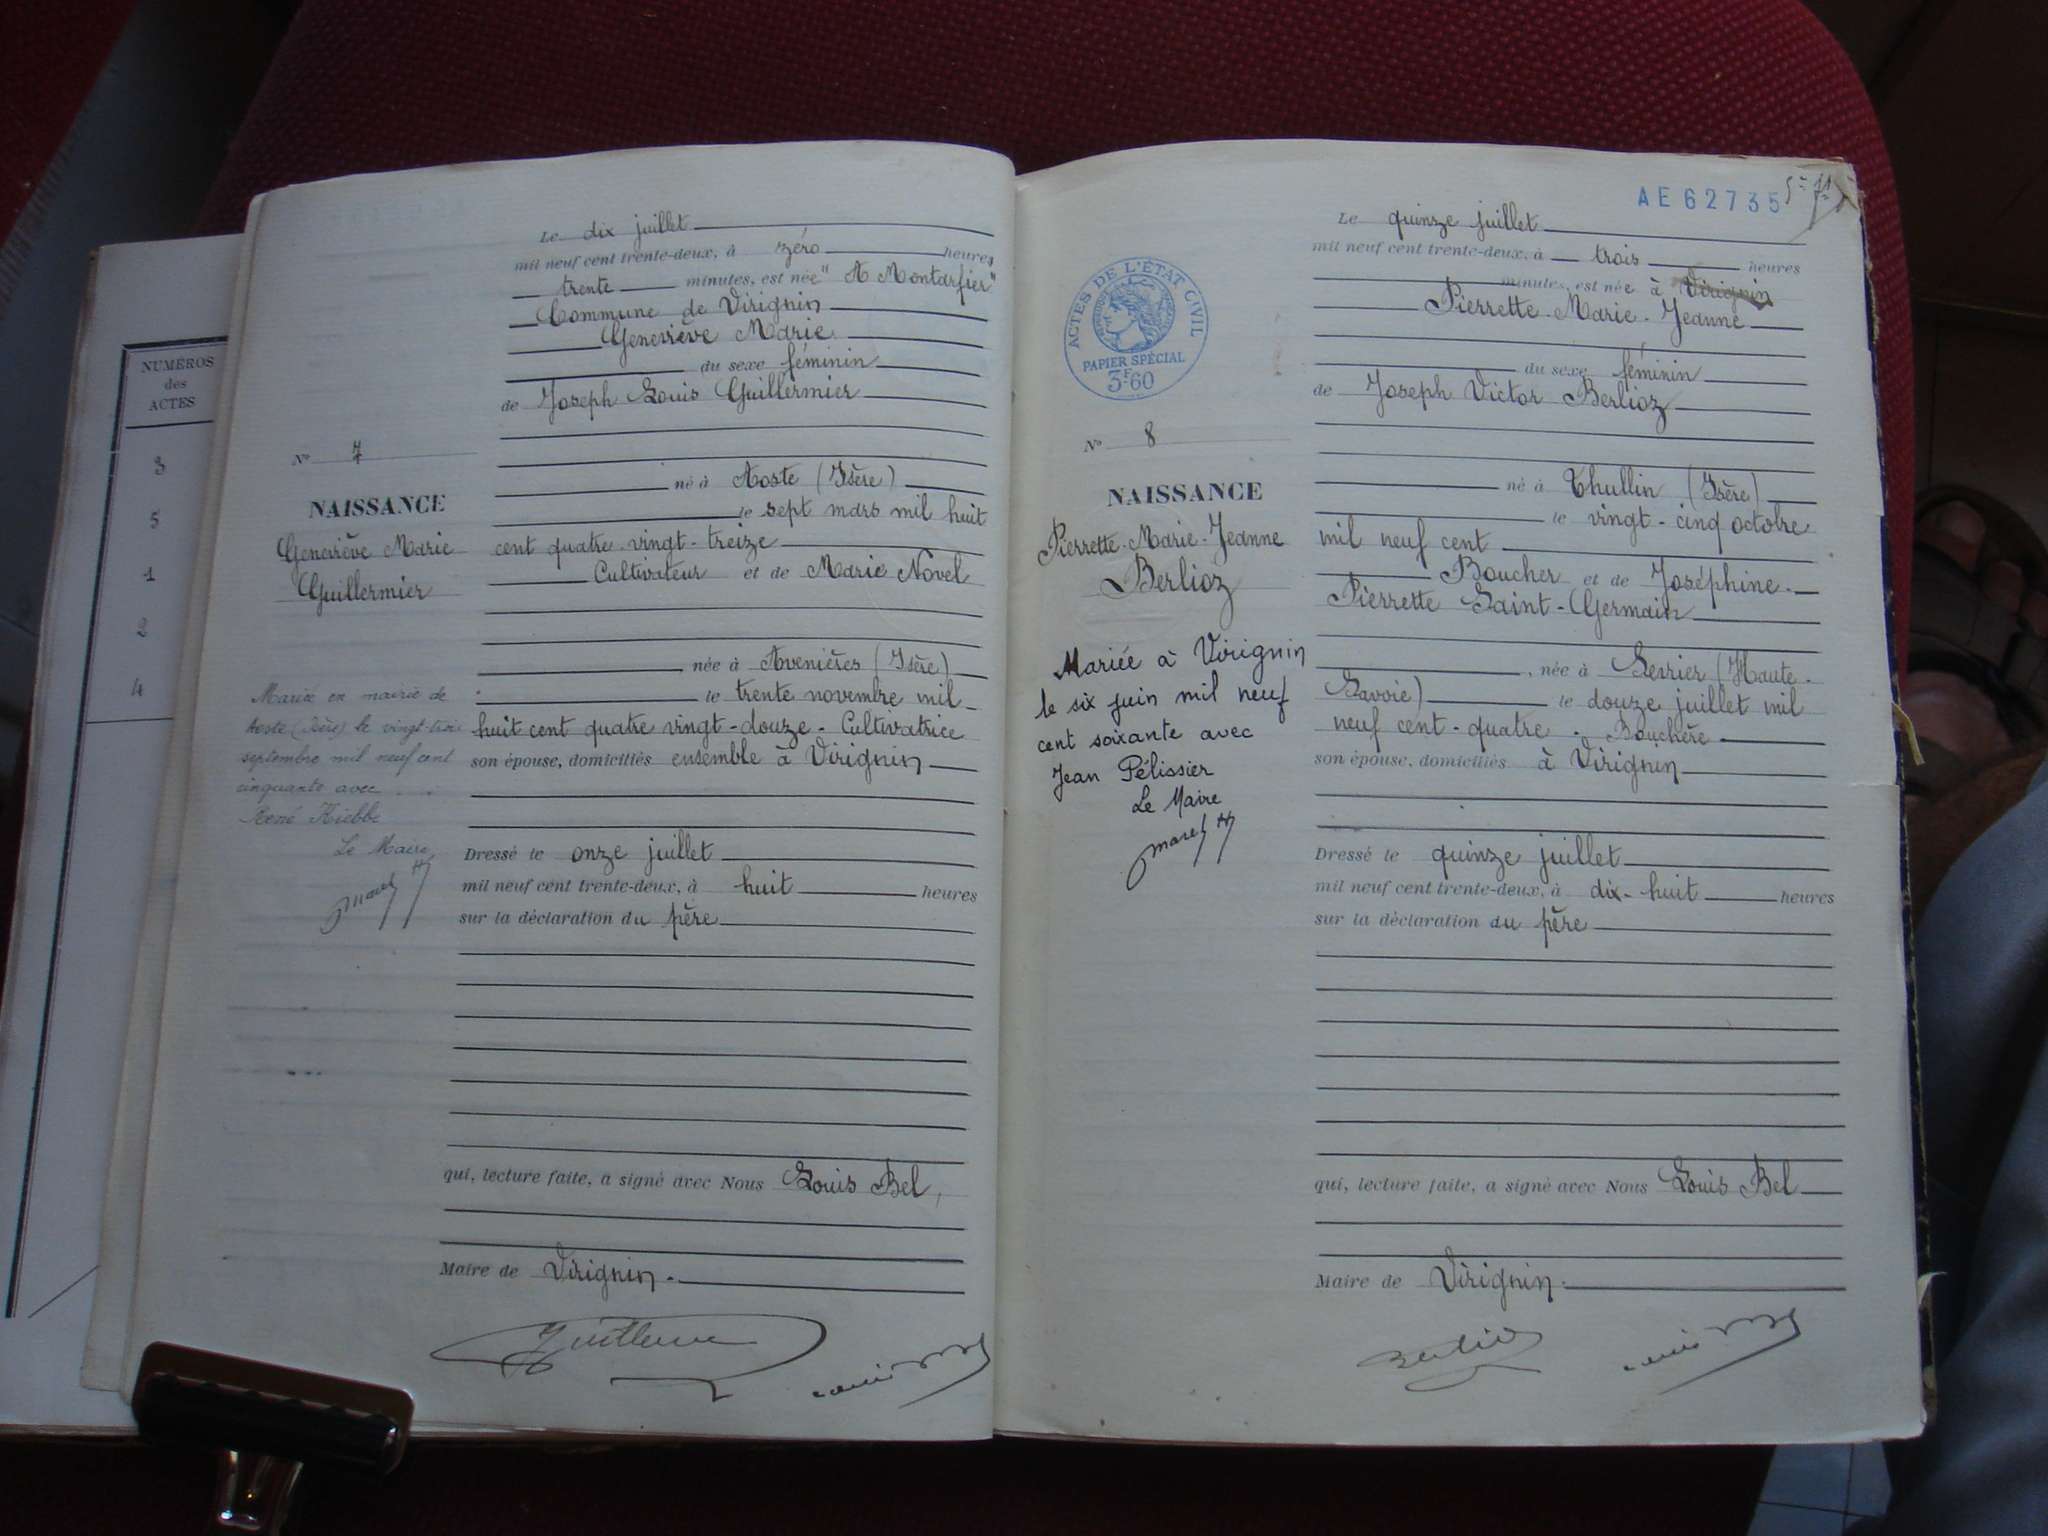 NUMÉROS
des
ACTES
3
5
1
2
4
Le dix juillet
mil neuf cent trente-deux, à zéro heures
trente minutes, est née "A Montarfier"
Commune de Virignin
Geneviève Marie
du sexe féminin
de Joseph Louis Guillermier
N° 7
né à Aoste (Isère)
NAISSANCE
le sept mars mil huit
Geneviève Marie
cent quatre-vingt-treize
Guillermier
Cultivateur et de Marie Novel
née à Avenières (Isère)
le trente novembre mil
huit cent quatre vingt-douze - Cultivatrice
son épouse, domiciliés ensemble à Virignin
Mariée en mairie de
Aoste (Isère) le vingt-trois
septembre mil neuf cent
cinquante avec
René
Le Maire
Dressé le onze juillet
mil neuf cent trente-deux, à huit heures
sur la déclaration du père
qui, lecture faite, a signé avec Nous Louis Bel,
Maire de Virignin.
AE62735
Le quinze juillet
mil neuf cent trente-deux, à trois heures
minutes, est née à Virignin
Pierrette-Marie-Jeanne
du sexe féminin
de Joseph Victor Berlioz
ACTES DE L'ÉTAT CIVIL
PAPIER SPÉCIAL
3F60
N° 8
né à Thullin (Isère)
NAISSANCE
le vingt-cinq octobre
Pierrette-Marie-Jeanne
mil neuf cent
Berlioz
Boucher et de Joséphine-
Pierrette Saint-Germain
née à Sevrier (Haute-
Savoie) le douze juillet mil
neuf cent-quatre - Bouchère
son épouse, domiciliés à Virignin
Mariée à Virignin
le six juin mil neuf
cent soixante avec
Jean Pélissier
Le Maire
Dressé le quinze juillet
mil neuf cent trente-deux, à dix-huit heures
sur la déclaration du père
qui, lecture faite, a signé avec Nous Louis Bel
Maire de Virignin.
Berlioz